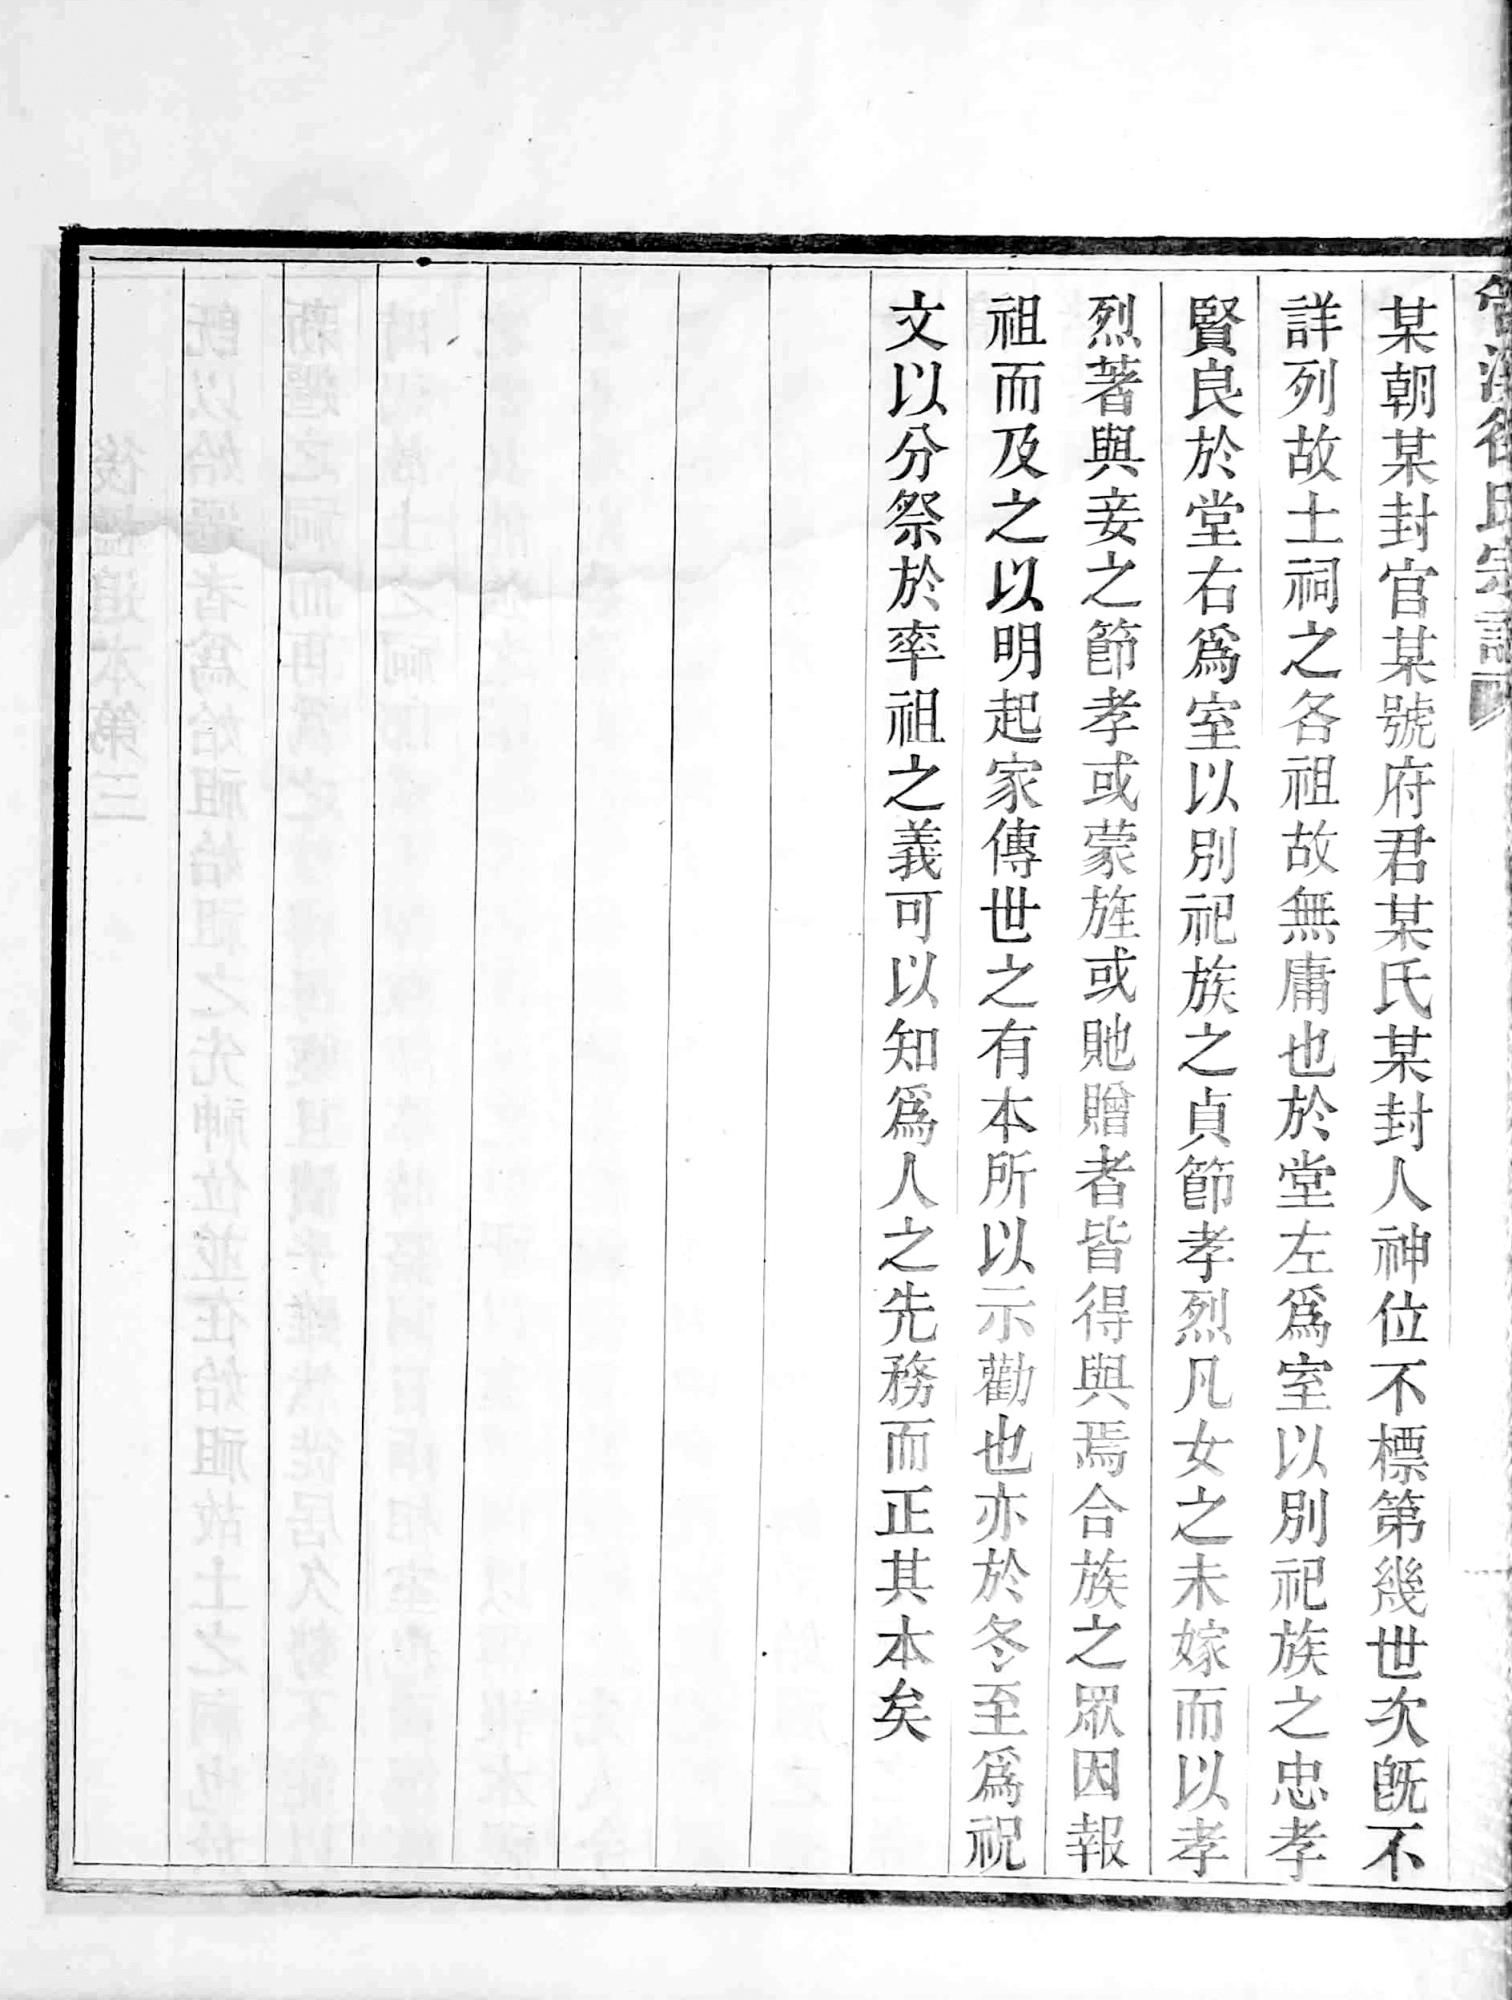 氏宗譜
某朝某封官某號府君某氏某封人神位不標第幾世次旣不
詳列故土祠之各祖故無庸也於堂左爲室以別祀族之忠孝
賢良於堂右爲室以別祀族之貞節孝烈凡女之未嫁而以孝
烈著與妾之節孝或蒙旌或貤贈者皆得與焉合族之眾因報
祖而及之以明起家傳世之有本所以示勸也亦於冬至爲祝
文以分祭於率祖之義可以知爲人之先務而正其本矣